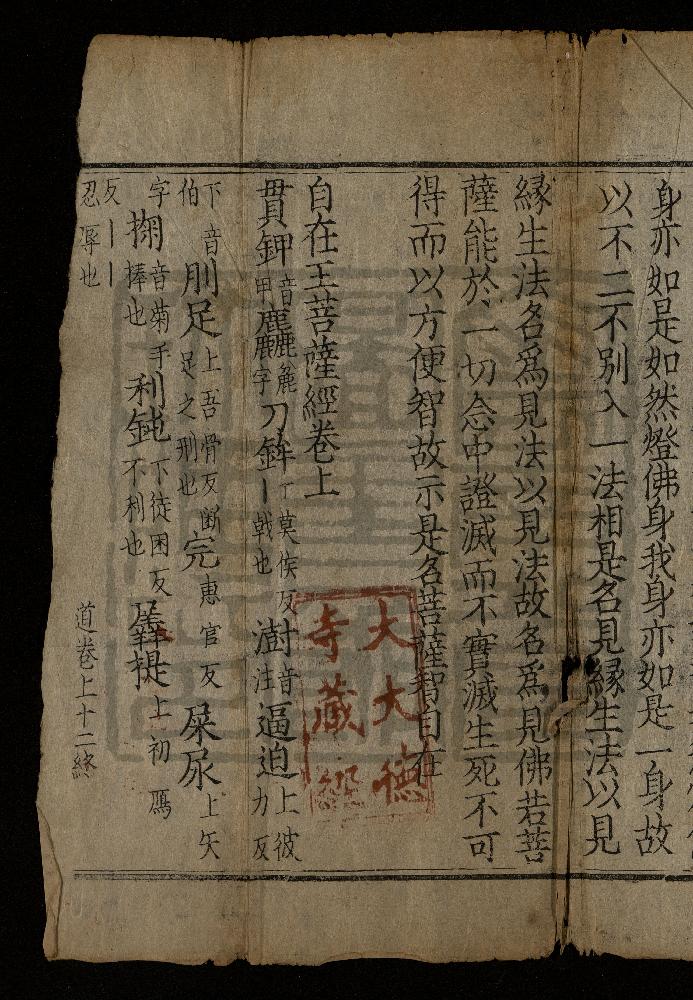 身亦如是如然燈佛身我身亦如是一身故
以不二不别入一法相是名見緣生法以見
緣生法名爲見法以見法故名爲見佛若菩
薩能於一切念中證滅而不實滅生死不可
得而以方便智故示是名菩薩智自在
自在王菩薩經卷上
貫鉀音甲麤麁字刀鉾下莫侯反丨戟也澍音注逼迫上彼力反
下音伯刖足上吾骨反斷足之刑也完惠官反屎尿上矢
字掬音菊手捧也利鈍下徒困反不利也羼提上初鴈
反丨丨忍辱也
道卷上十二終
大大德
寺藏經